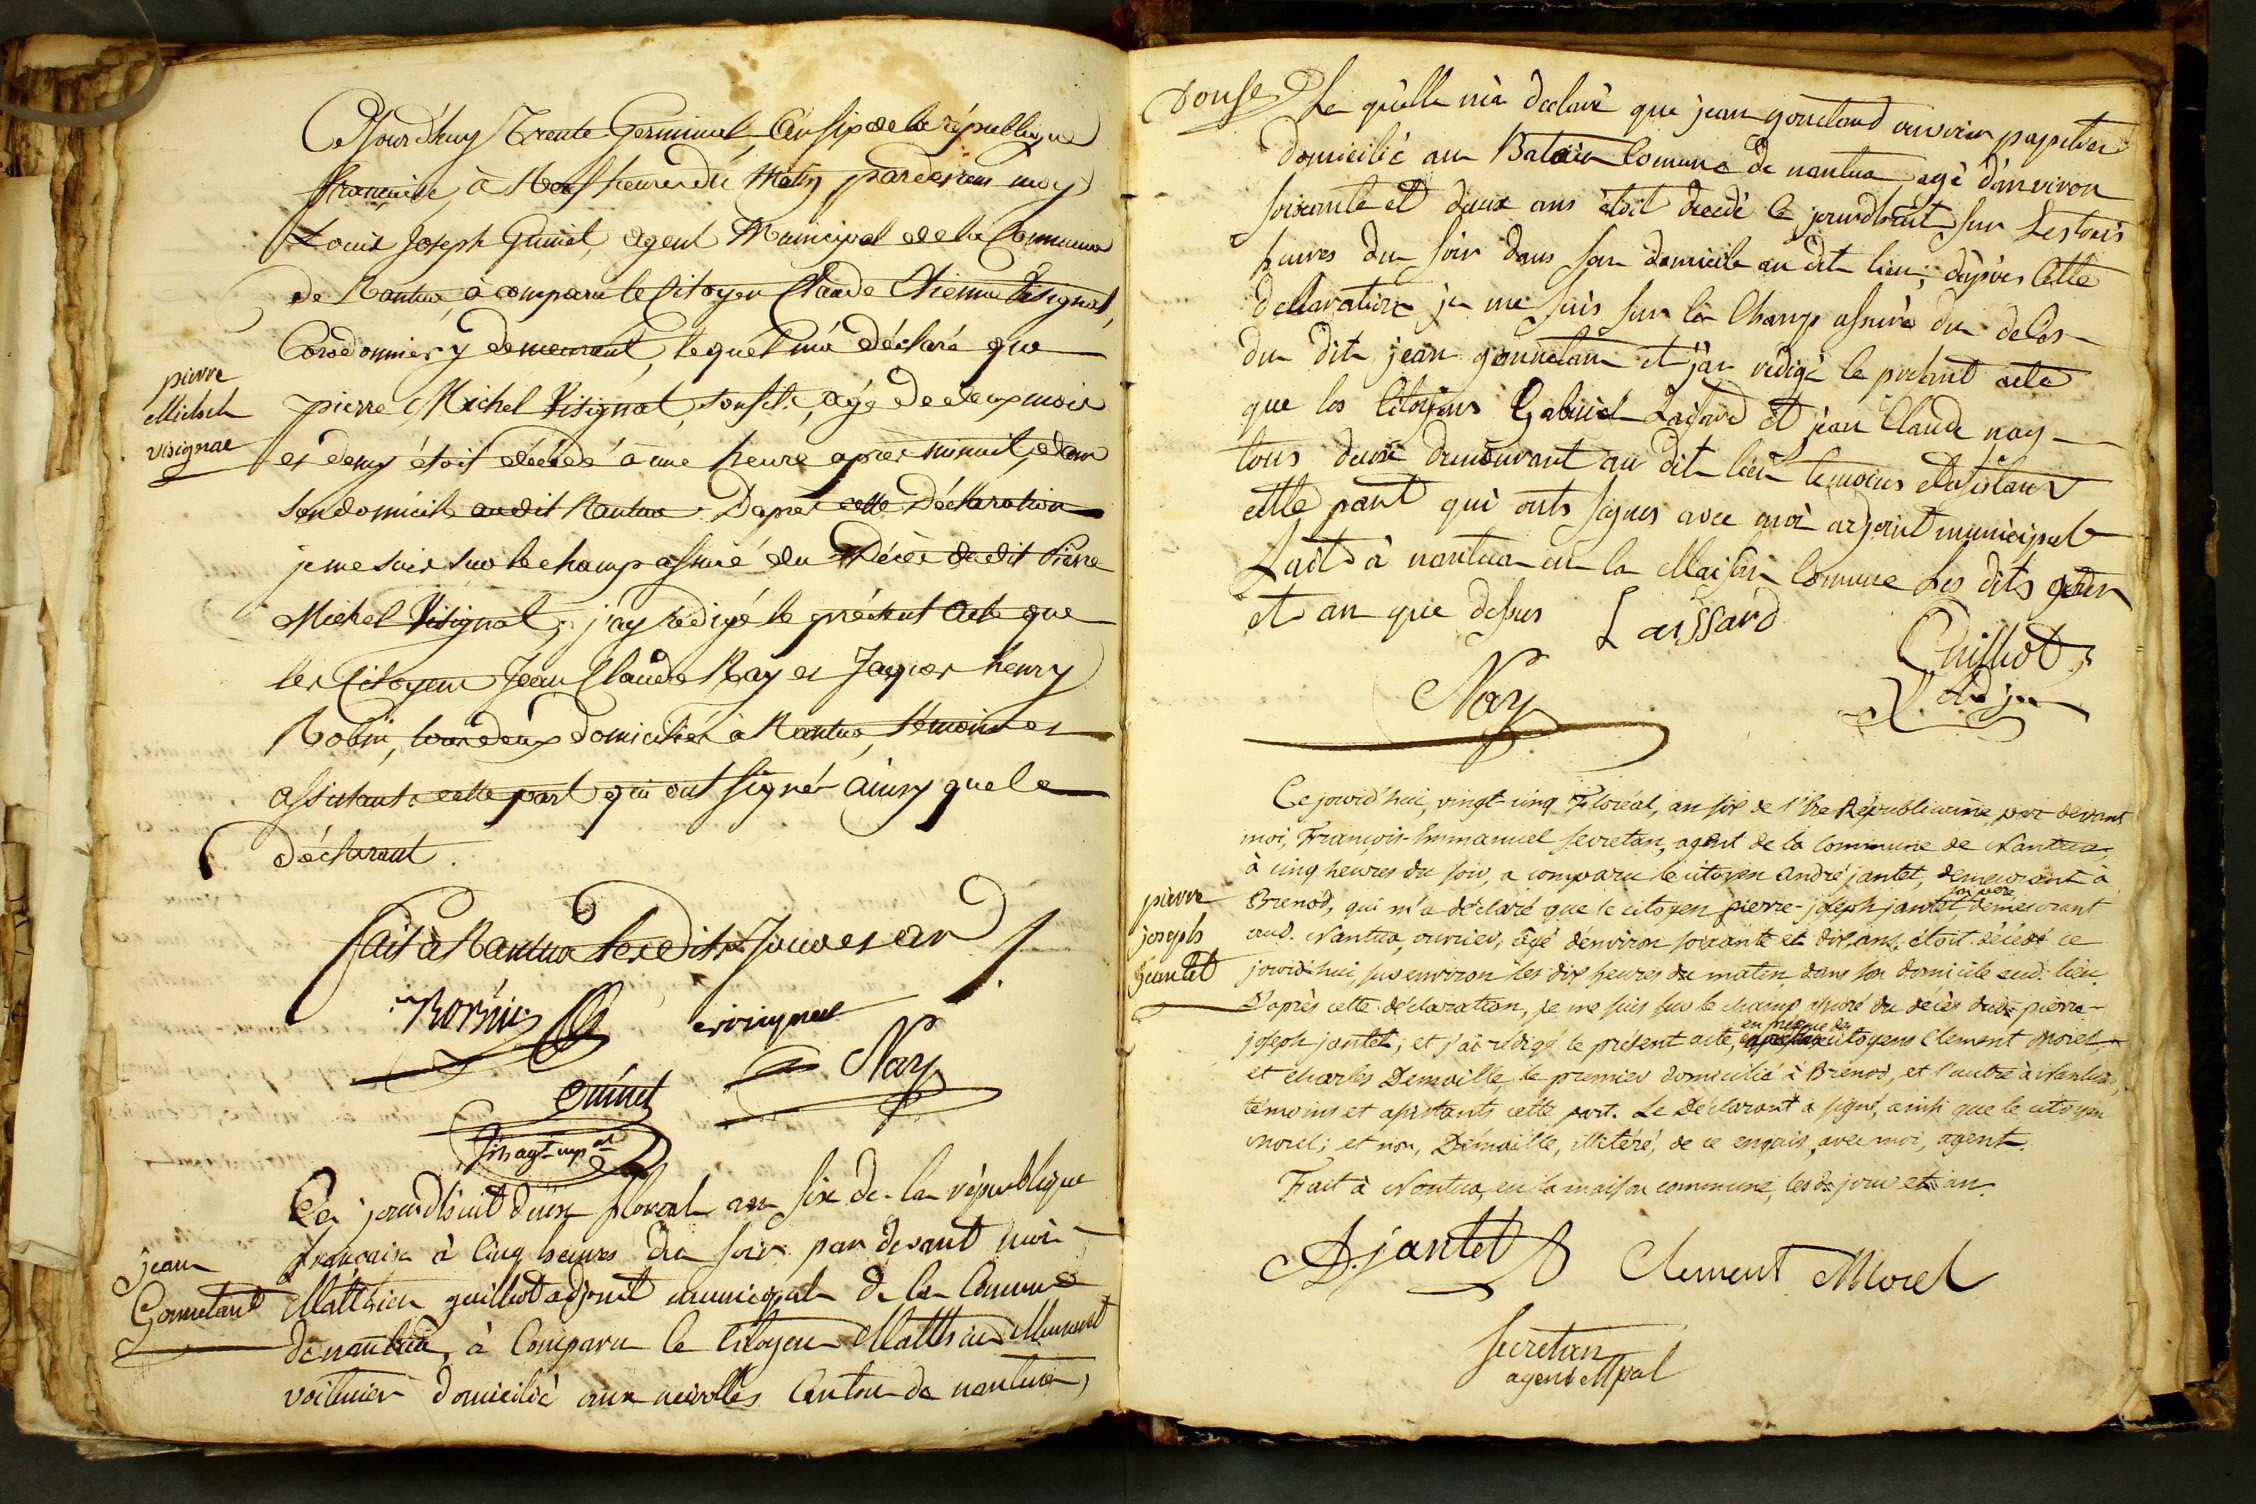 Cejourd'huy Trente Germinal, l'an six de la république
française, à Neuf heures du Matin, pardevant moy
Louis Joseph Guinet, agent Municipal de la Commune
de Nantua, à comparu le Citoyen Claude Etienne Visignat,
Cordonnier y demeurant, lequel m'a déclaré que
pierre
Michel
visignat
pierre Michel Visignat, son fils, agé de deux mois
et demy étoit décédé à une heure après minuit, dans
son domicile audit Nantua. D'après cette Déclaration
je me suis sur le champ assuré du Décès dudit Pierre
Michel Visignat, j'ay rédigé le présent Acte que
les Citoyens Jean Claude Nay et Jaques henry
Robin, tous deux domiciliés à Nantua, témoins et
assistants cette part qui ont signés ainsy que le
déclarant.
fait à Nantua les dits Jour et an
Robin
visignat
Nay
Guinet
agt mpal
jean
Gonnetant
Ce jourdhuit deux floreal an six de la république
française à Cinq heures du soir par devant moi
Matthieu guillot adjoint municipal de la Comune
de nantua, à Comparu le Citoyen Matthieu
voiturier domicilié aux neirolles Canton de nantua,
Le quelle m'à declaré que jean gonetand ouvrier pappetier
domicilié au Comune de nantua agé d'anviron
soixante et deux ans étoit decedé le jourdhuit sur Les trois
heures du soir dans son domicile au dit lieu; d'après Cette
declaration je me suis sur le Champ assuré du deces
du dit jean gonnetan et j'ai redigé le present acte
que les Citoyens Gabriel Laissard et jean Claude nay
tous deux demeurant au dit lieu temoins et assistans
cette part qui onts signés avec moi adjoint municipal
Fait à nantua en la Maison Comune Les dits jour
et an que dessus
Laissard
Nay
Guillot
adjoint
Ce jourd'hui, vingt-cinq Floréal, an six de l'Ere Républicaine, par devant
moi, François-Emmanuel Secretan, agent de la Commune de Nantua,
à cinq heures du soir, a comparu le citoyen andré jantet, demeurant à
pierre
joseph
jeantet
Brenod, qui m'a déclaré que le citoyen pierre-joseph jantet, son père, demeurant
aud. Nantua, ouvrier, âgé d'environ soixante et dix ans, étoit décédé ce
jourd'hui, sur environ les dix heures du matin, dans son domicile aud. lieu.
D'après cette déclaration, je me suis sur le champ assuré du décès dud. pierre-
joseph jantet; et j'ai rédigé le présent acte, en présence des citoyens Clement Morel,
et Charles Demaille, le premier domicilié à Brenod, et l'autre à Nantua,
témoins et assistants cette part. Le Déclarant a signé, ainsi que le citoyen
Morel; et non, Démaille, illitéré, de ce enquis, avec moi, agent.
Fait à Nantua, en la maison commune, lesd. jour et an.
A. jantet
Clement Morel
Secretan
agent Mpal